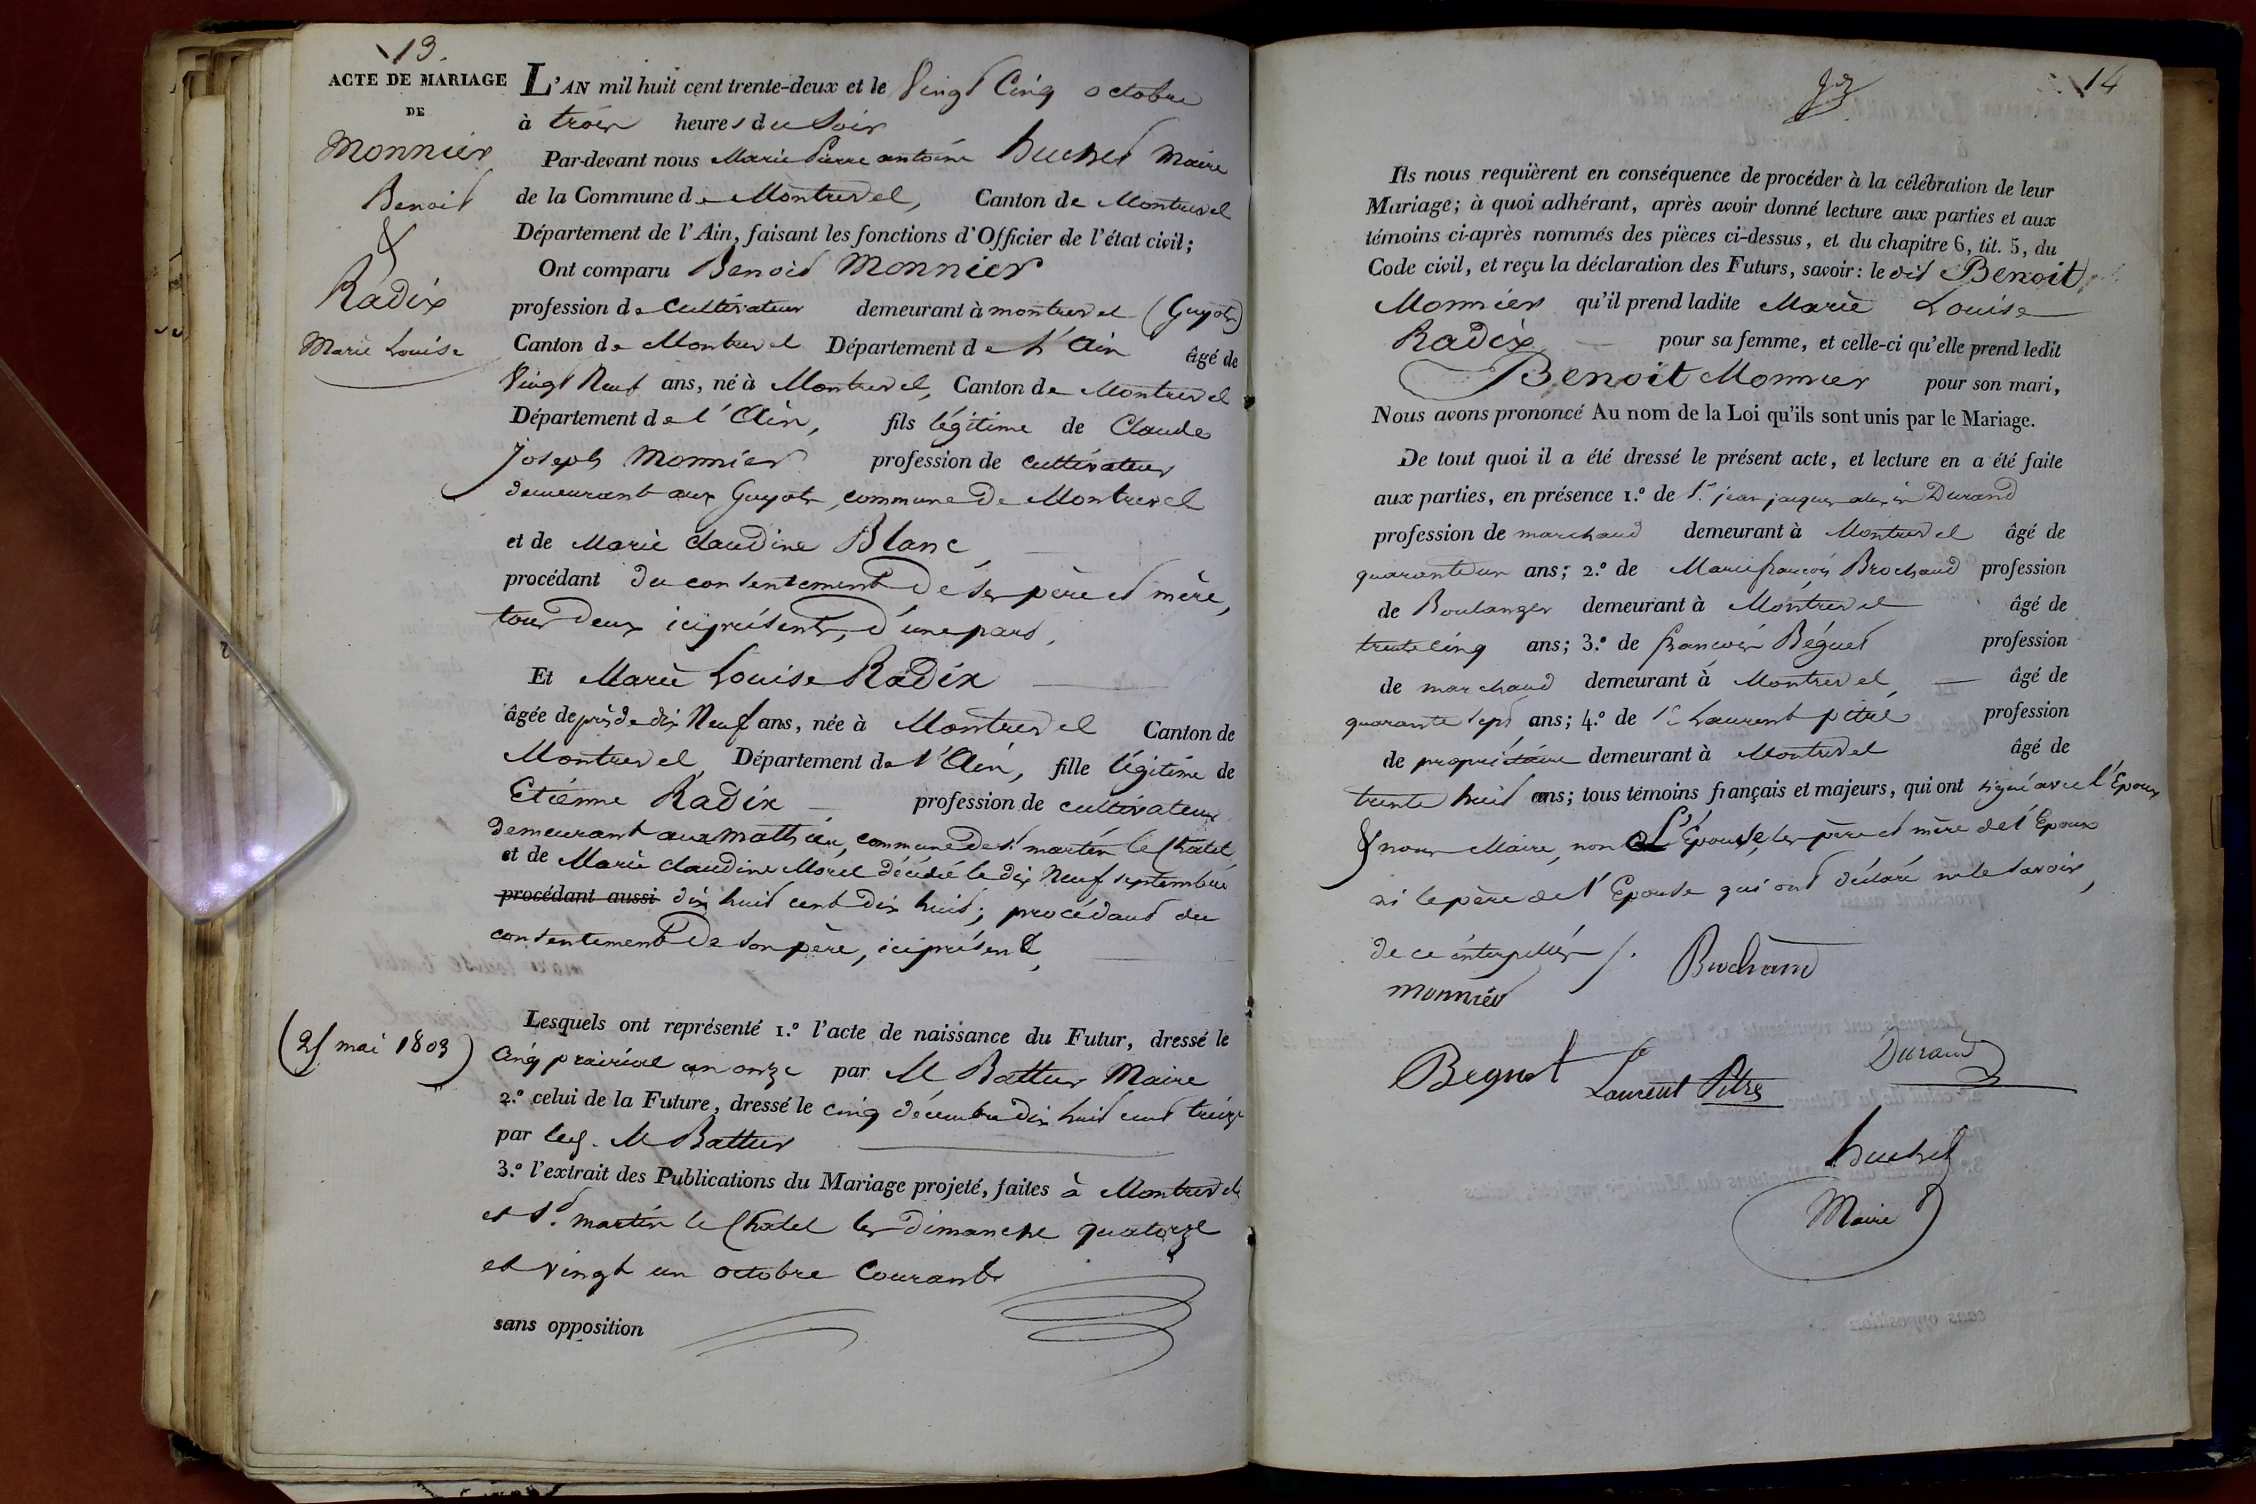 13.
ACTE DE MARIAGE
DE
Monnier
Benoit
&
Radix
Marie Louise
L'AN mil huit cent trente-deux et le Vingt Cinq octobre
à trois heures du Soir
Par-devant nous Marie Pierre antoine huchet Maire
de la Commune de Montrevel, Canton de Montrevel
Département de l'Ain, faisant les fonctions d'Officier de l'état civil;
Ont comparu Benoit Monnier
profession de Cultivateur demeurant à montrevel (Guyots)
Canton de Montrevel Département de L'Ain âgé de
Vingt Neuf ans, né à Montrevel, Canton de Montrevel
Département de l'Ain, fils légitime de Claude
Joseph Monnier profession de cultivateur
demeurant aux Guyots, commune De Montrevel
et de Marie claudine Blanc
procédant du consentement De ses père et mère,
tous Deux ici présents, d'une part,
Et Marie Louise Radix
âgée de près de dix Neuf ans, née à Montrevel Canton de
Montrevel, Département de l'Ain, fille légitime de
Etienne Radix profession de cultivateur
demeurant aux Mathieu, commune de St. martin le Chatel,
et de Marie claudine Morel décédée le dix Neuf septembre
procédant aussi dix huit cent dix huit; procédant du
consentement De son père, ici présent,
(25 mai 1803)
Lesquels ont représenté 1.º l'acte de naissance du Futur, dressé le
Cinq prairial an onze par M Battur Maire
2.º celui de la Future, dressé le cinq décembre dix huit cent treize
par led. M Battur
3.º l'extrait des Publications du Mariage projeté, faites à Montrevel
et St. martin le Chatel les Dimanche quatorze
et vingt un octobre Courant
sans opposition
14
Ils nous requièrent en conséquence de procéder à la célébration de leur
Mariage; à quoi adhérant, après avoir donné lecture aux parties et aux
témoins ci-après nommés des pièces ci-dessus, et du chapitre 6, tit. 5, du
Code civil, et reçu la déclaration des Futurs, savoir: le dit Benoit
Monnier qu'il prend ladite Marie Louise
Radix pour sa femme, et celle-ci qu'elle prend ledit
Benoit Monnier pour son mari,
Nous avons prononcé Au nom de la Loi qu'ils sont unis par le Mariage.
De tout quoi il a été dressé le présent acte, et lecture en a été faite
aux parties, en présence 1.º de Sr. jean jacques alexis Durand
profession de marchand demeurant à Montrevel âgé de
quarante un ans; 2.º de Marie françois Brochand profession
de Boulanger demeurant à Montrevel âgé de
trente cinq ans; 3.º de françois Béguet profession
de marchand demeurant à Montrevel, âgé de
quarante sept ans; 4.º de Sr Laurent pitre profession
de propriétaire demeurant à Montrevel âgé de
trente huit ans; tous témoins français et majeurs, qui ont signé avec l'Epoux
& nous Maire, non L'Epouse, les père et mère de l'Epoux
ni le père de l'Epouse qui ont déclaré ne le savoir,
de ce interpellés /.
Brochand
monnier
Beguet
Laurent Pitre
Durand
huchet
Maire